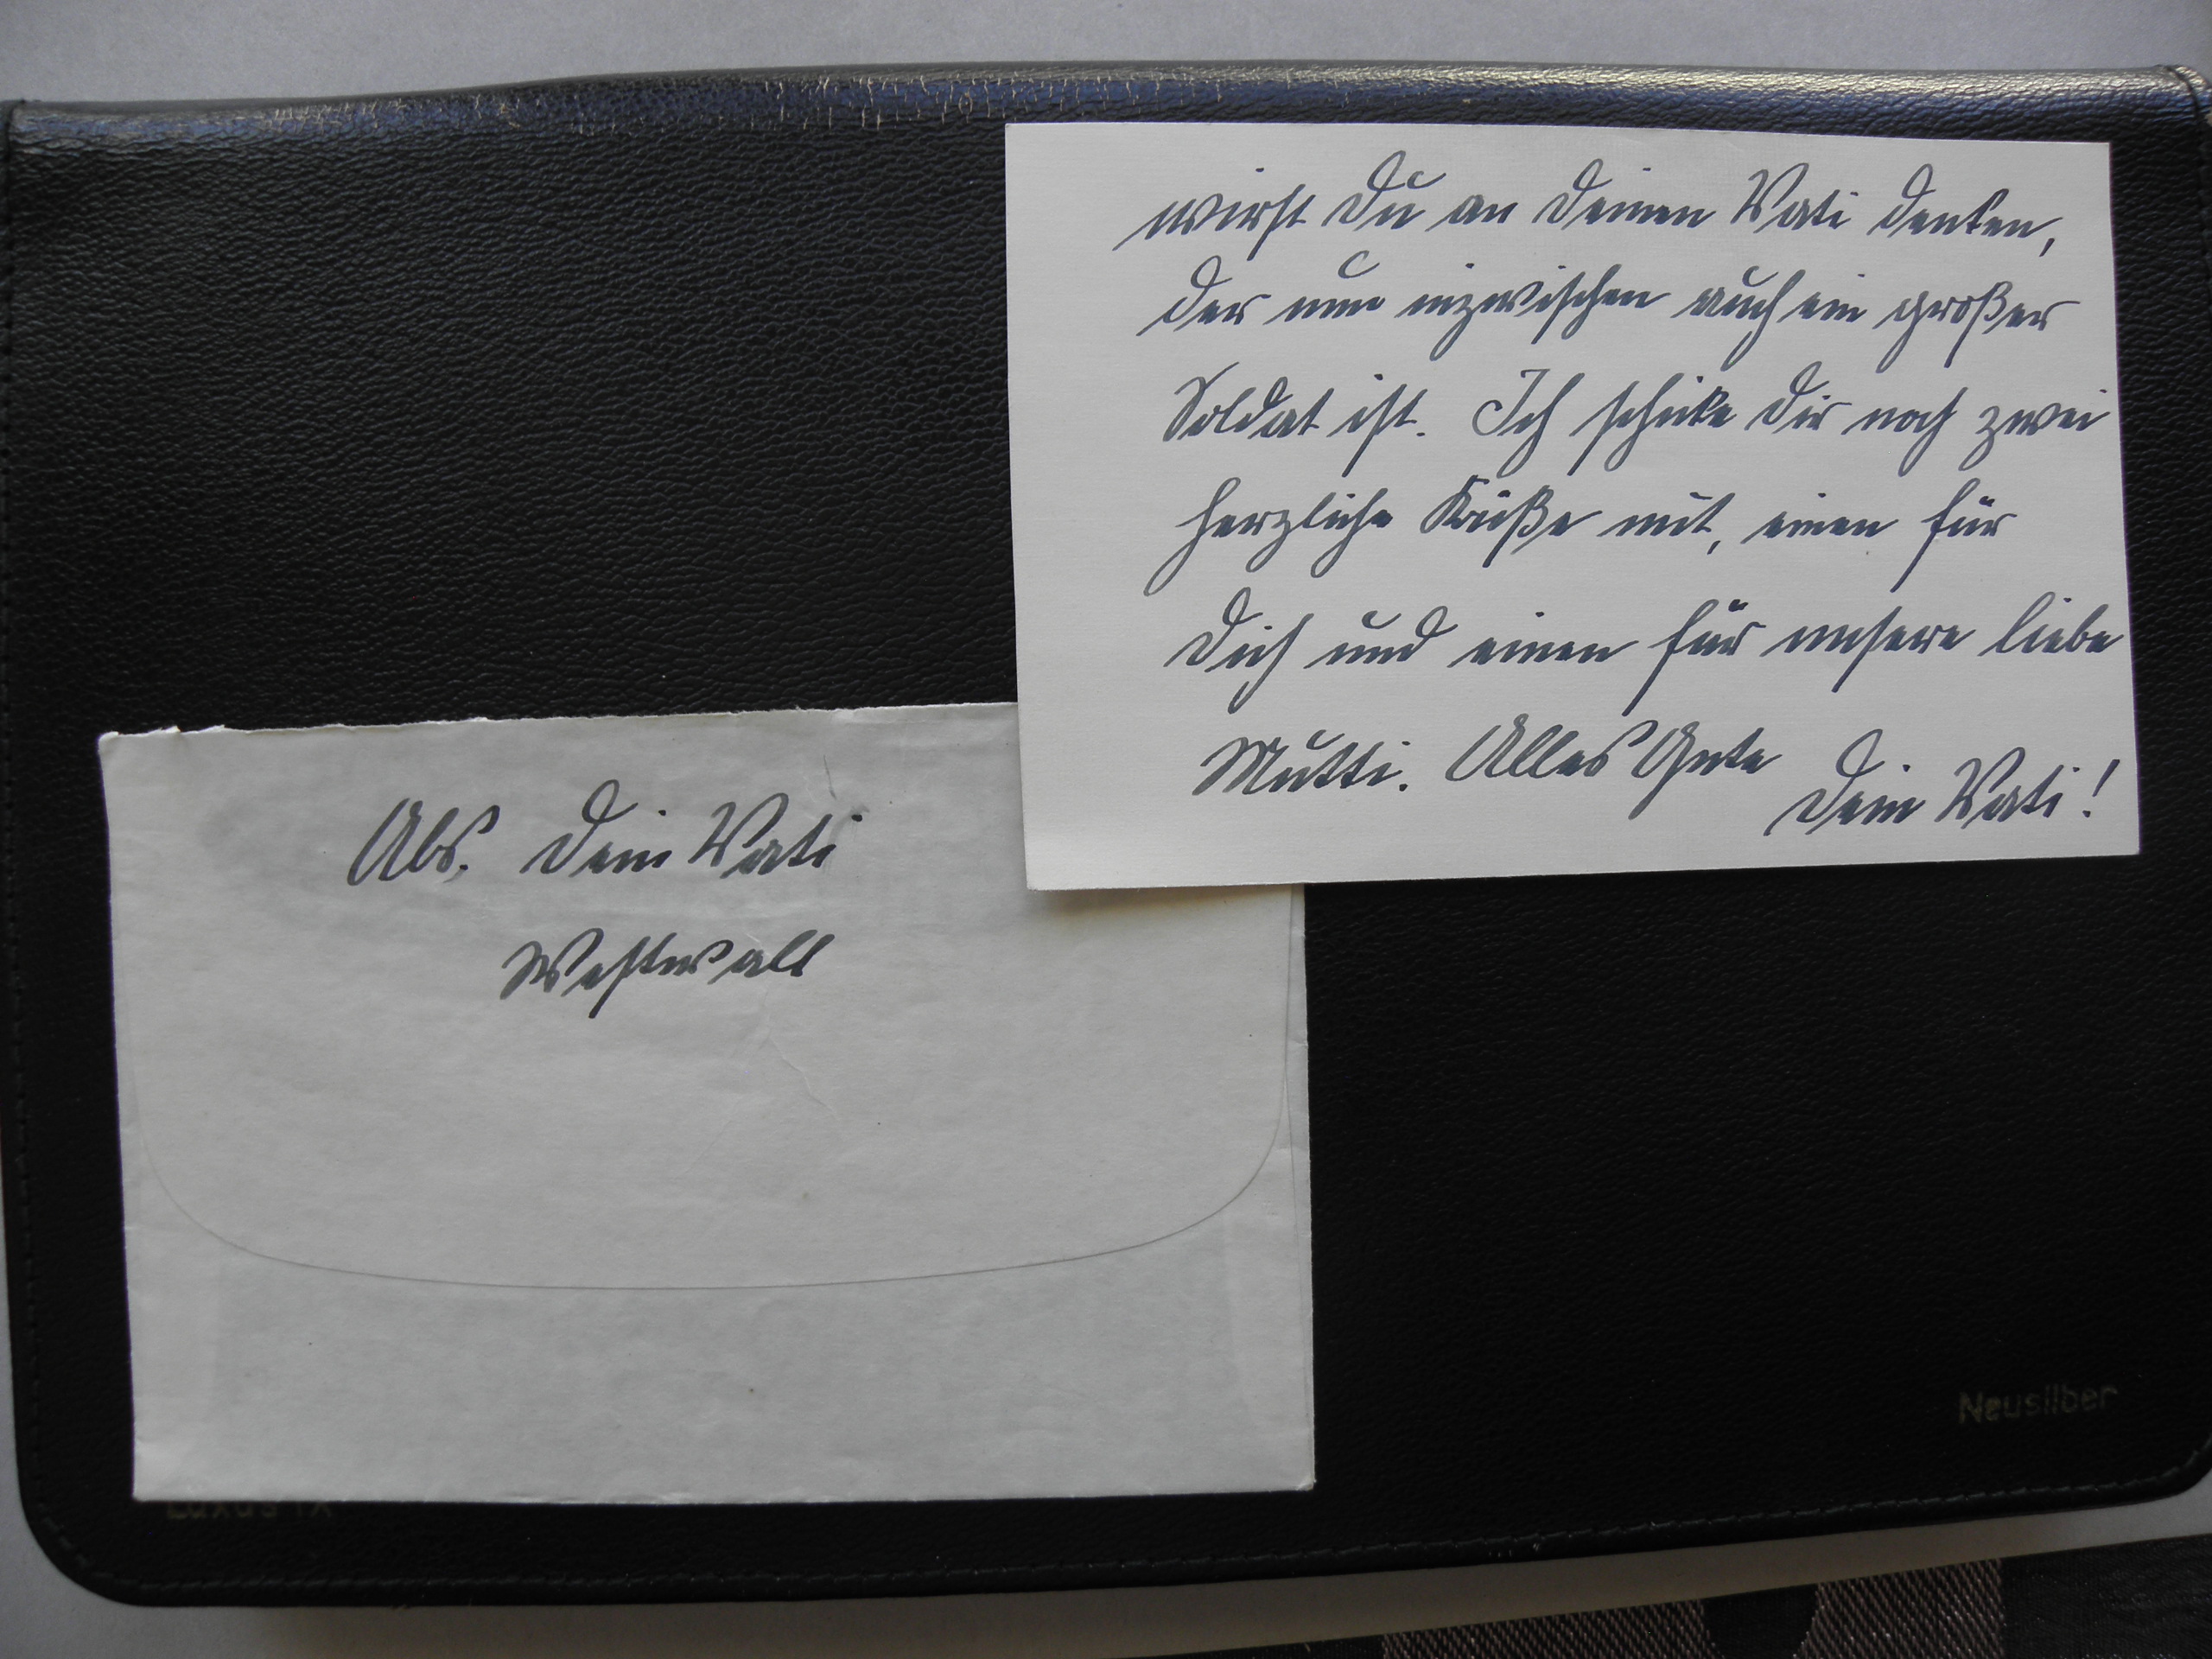 wirst Du an Deinen Vati denken,
der nun inzwischen auch ein großer
Soldat ist. Ich schicke Dir noch zwei
herzliche Küße mit, einen für
Dich und einen für unsere liebe
Mutti. Alles Gute
Dein Vati!
Abs. Dein Vati
Westwall
Neusilber